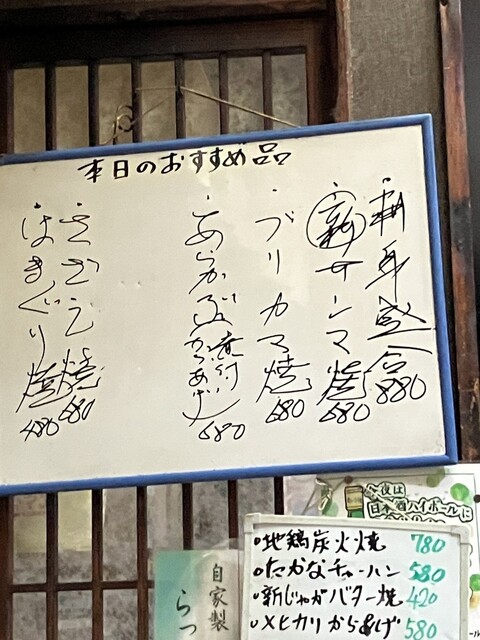 本日のおすすめ品
刺身盛合 880
新サンマ焼 680
ブリカマ焼 680
あらかぶ(煮付、からあげ) 680
さざえ焼 680
はまぐり焼 480
今夜は
日本酒ハイボールに
・地鶏炭火焼 780
・たかなチャーハン 580
・新じゃがバター焼 420
・メヒカリからあげ 580
自家製
らっ